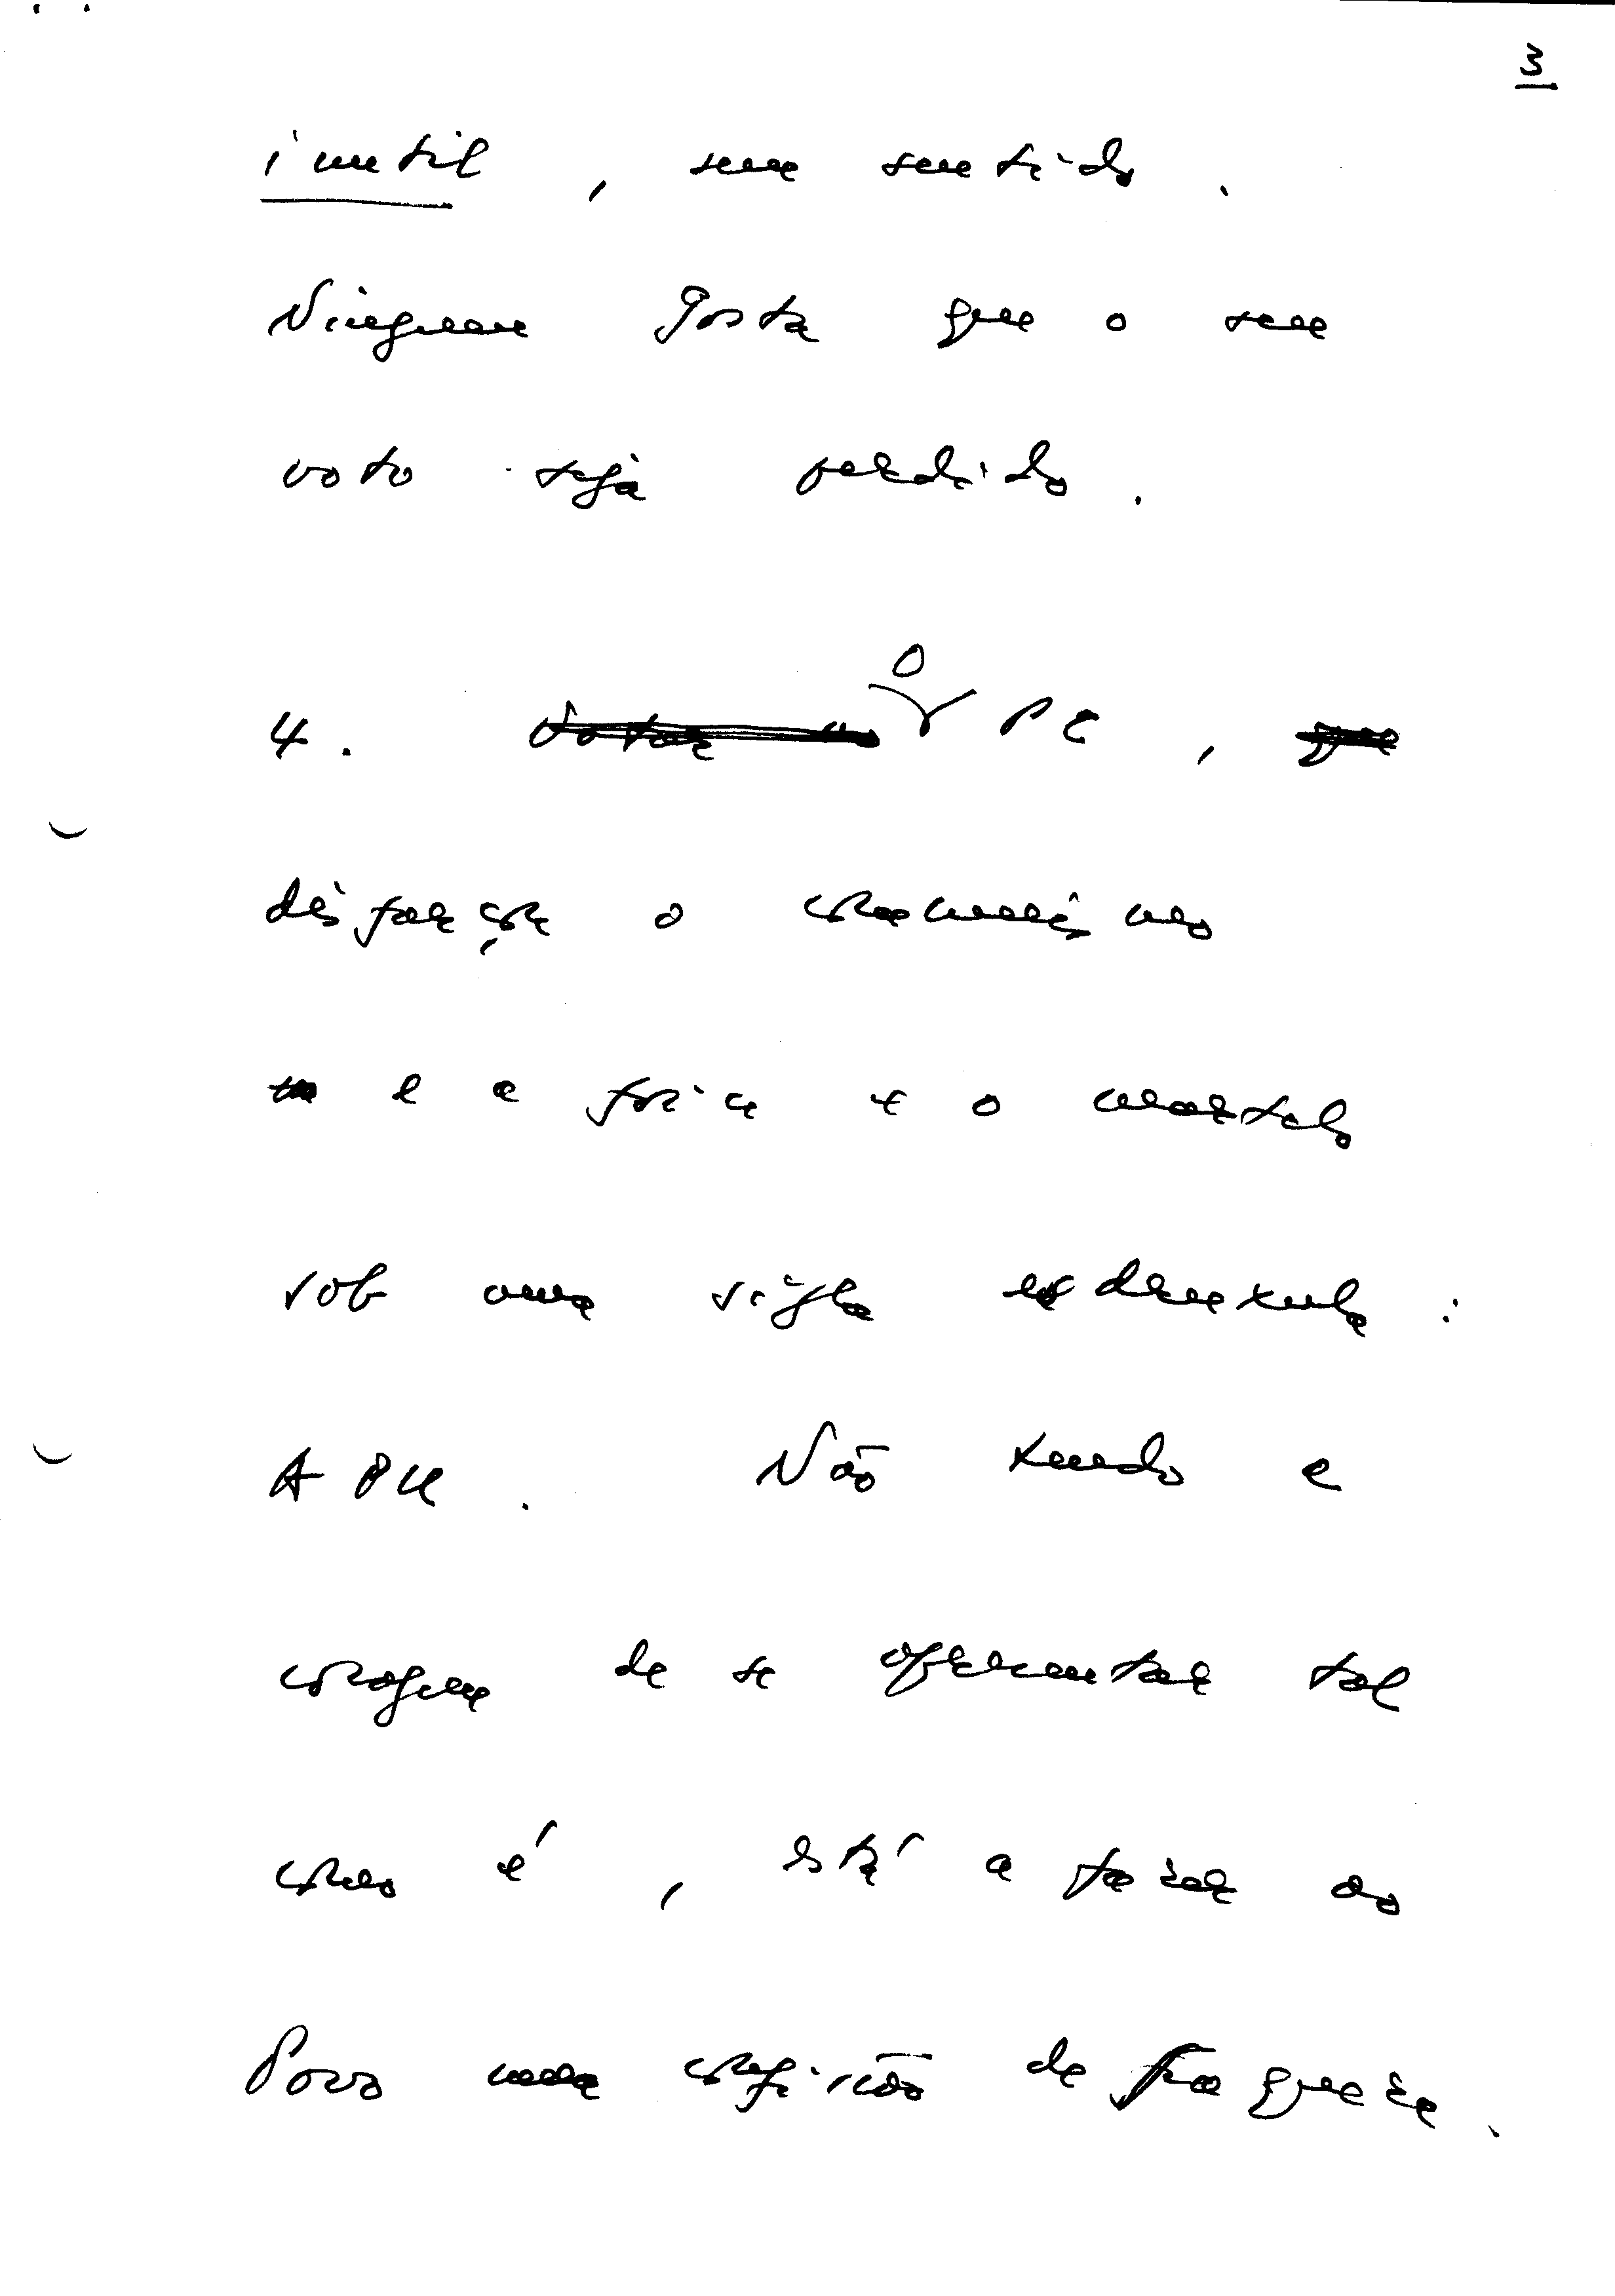 3
inutil, sem sentido.
Ninguem gosta que o seu
voto seja perdido.
O
4. Votar no PC, que
disfarça o comunismo
e a foice e o martelo
sob uma sigla esdruxula:
APU. Não tendo a
coragem de se apresentar tal
como é, está a fazer ao
Povo uma confissão de fraqueza.